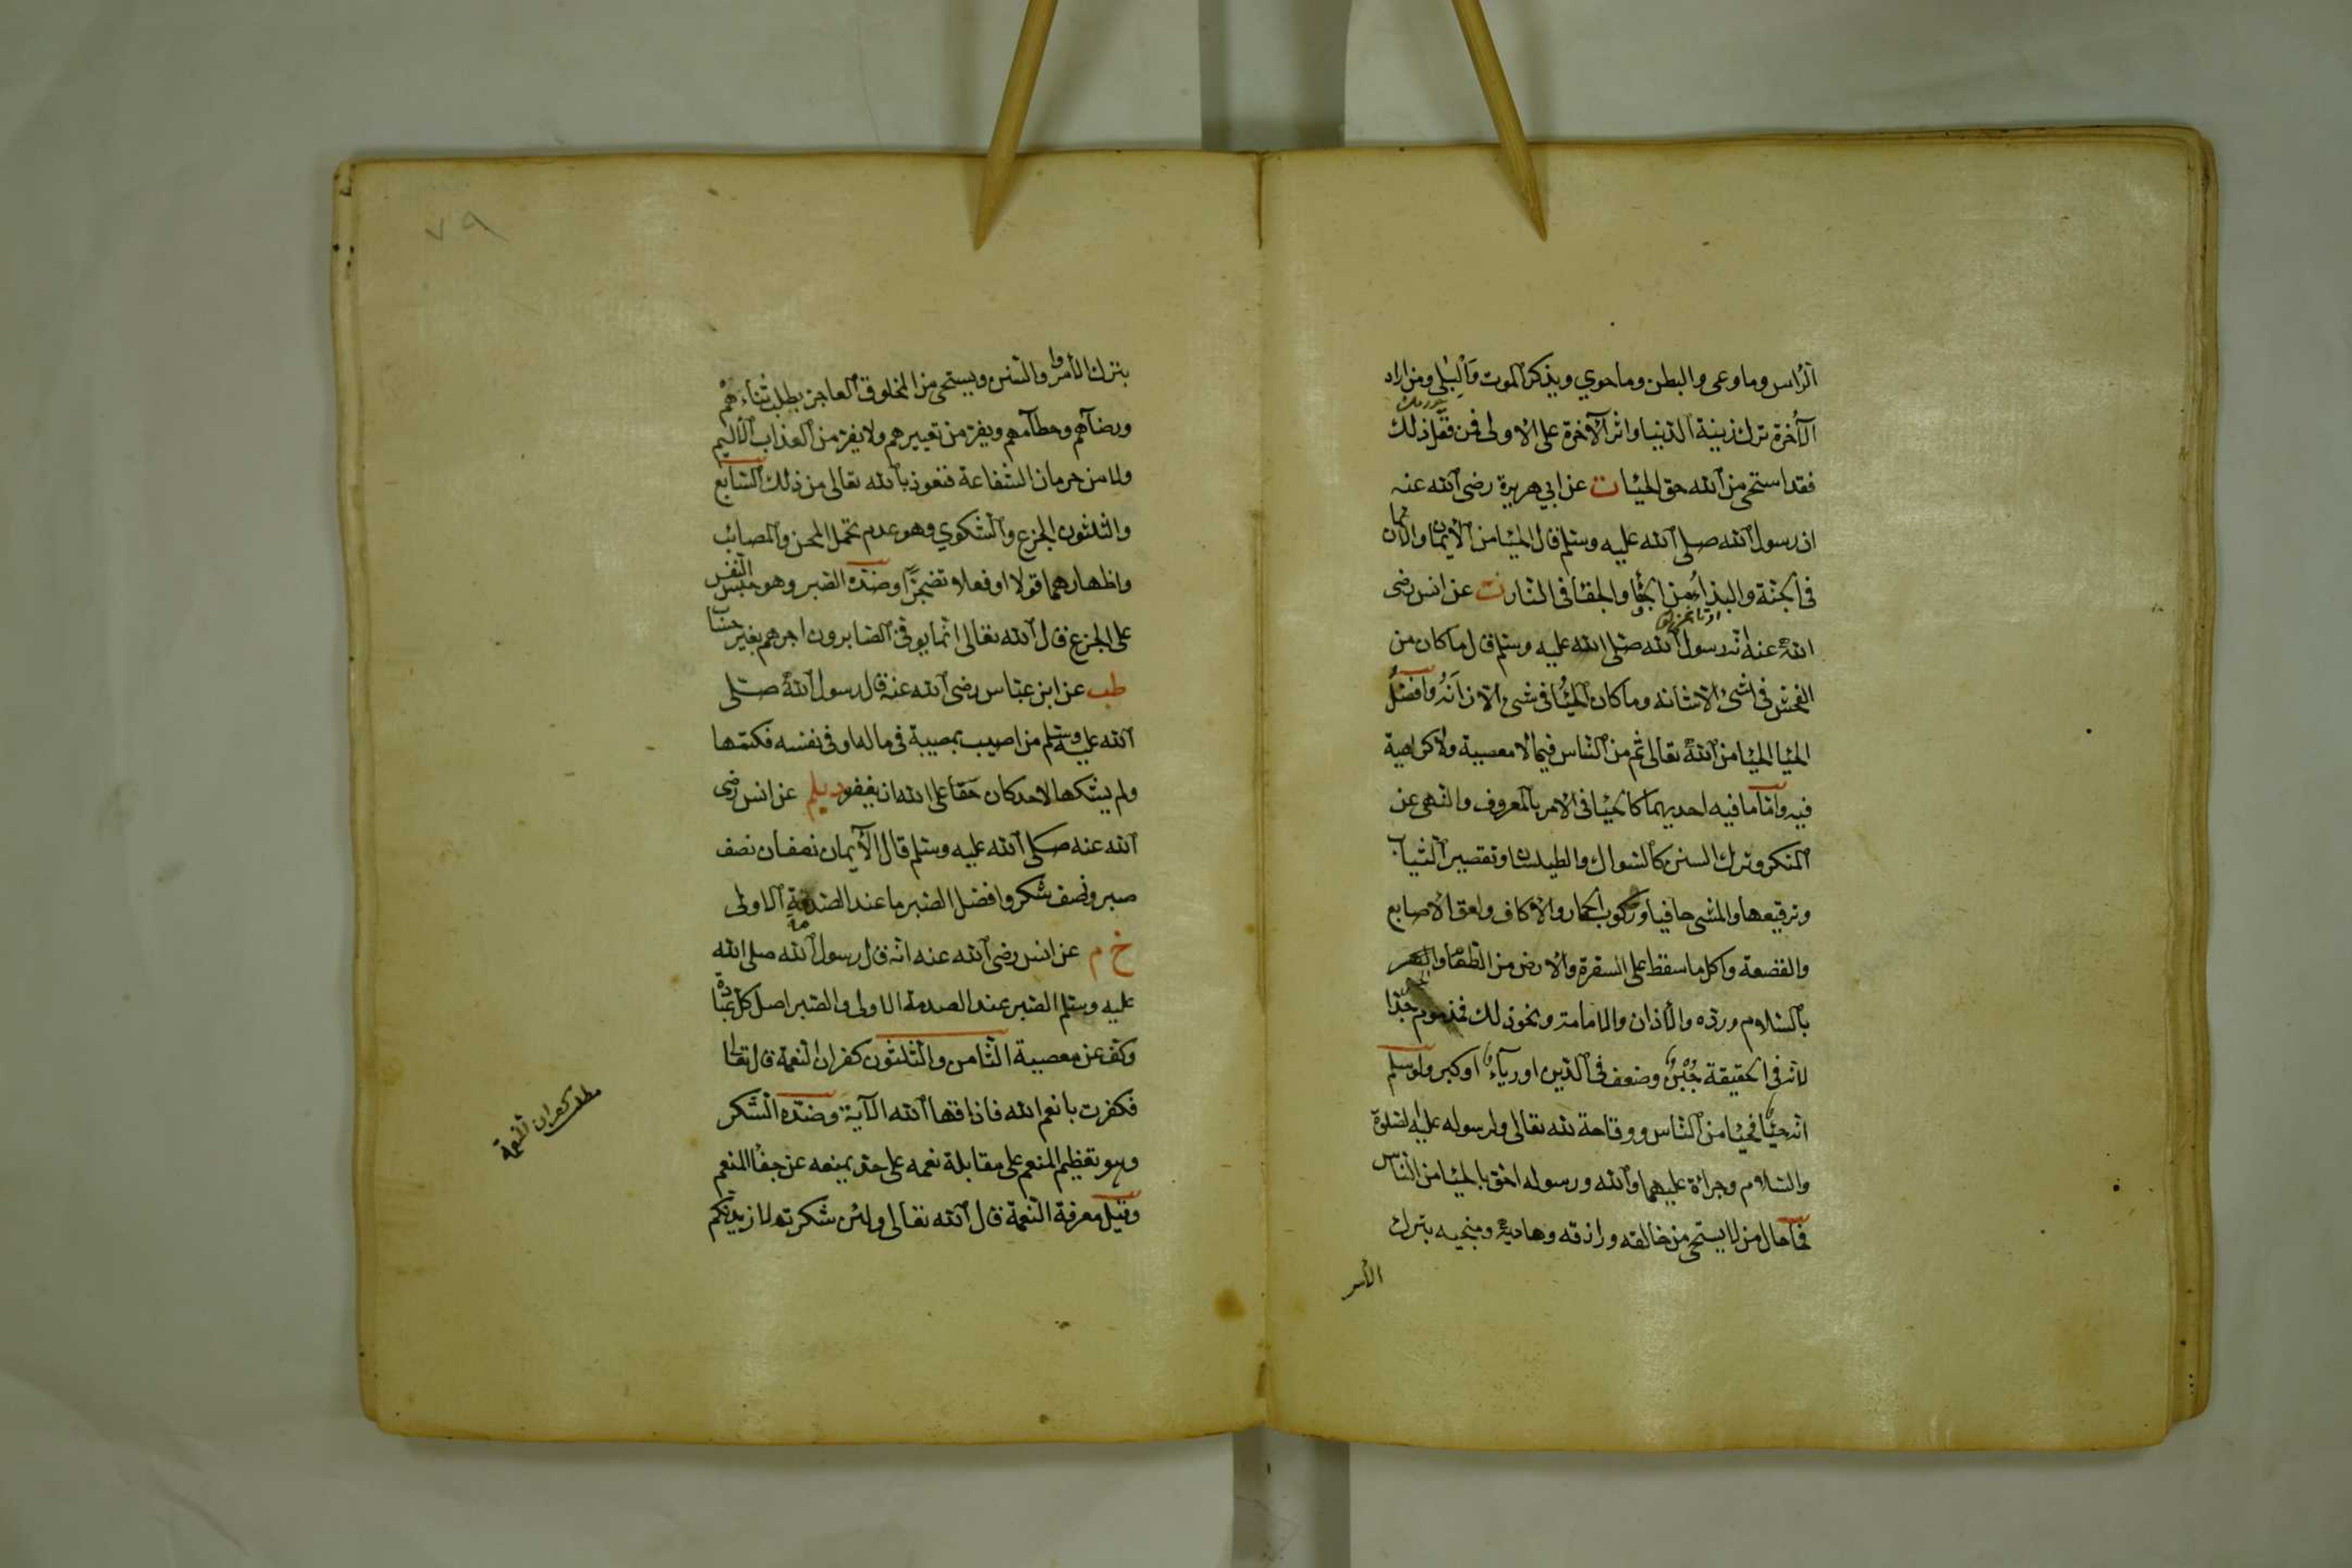 الرأس وما وعى والبطن وما حوي ويذكر الموت والبلى ومن اراد
الآخرة ترك زينة الدنيا واثر الآخرة على الاولى فمن فعل ذلك
فقد استحى من الله حق الحيا ت عن ابي هريرة رضى الله عنه
ان رسول الله صلى الله عليه وسلم قال الحيا من الأيمان والايمان
في الجنة والبذاء من الجفا والجفا في النار ت عن انس رضى
الله عنه انه رسول الله صلى الله عليه وسلم قال ما كان من
الفحش في شئ الا شانه وما كان الحيا في شئ الا زانه وافضل
الحيا الحيا من الله تعالى ثم من الناس فيما لا معصية ولا كراهية
فيه واما ما فيه احديهما كالحيا في الامر بالمعروف والنهى عن
المنكر وترك السنن كالسواك والطيلسان وتقصير الثياب
وترقيعها والمشى حافيا وركوب الحمار والاكاف ولعق الاصابع
والقصعة واكل ما سقط على السفرة والارض من الطعام والجهر
بالسلام ورده والأذان والامامة ونحو ذلك فمذموم جدا
لانه في الحقيقة جبن وضعف في الدين او رياء او كبر ولو سلم
انه حيا فحيا من الناس ووقاحة لله تعالى ولرسوله عليه الصلوة
والسلام وجرائة عليهما والله ورسوله احق بالحيا من الناس
فما حال من لا يستحى من خالقه ورازقه وهاديه ومنجيه بترك
الأمر
٧٩
بترك الأمر والسنن ويستحى من المخلوق العاجز بطلب ثناءهم
ورضآهم وحطامهم ويفر من تعييرهم ولا يفر من العذاب الأليم
ولا من حرمان الشفاعة فنعوذ بالله تعالى من ذلك السابع
والثلثون الجزع والشكوي وهو عدم تحمل المحن والمصائب
واظهارهما قولا او فعلا تضجرا وضده الصبر وهو حبس النفس
على الجزع قال الله تعالى انما يوفى الصابرون اجرهم بغير حساب
طب عن ابن عباس رضى الله عنه قال رسول الله صلى
الله عليه وسلم من اصيب بمصيبة في ماله او في نفسه فكتمها
ولم يشكها لاحد كان حقا على الله ان يغفر ديلم عن انس رضى
الله عنه صلى الله عليه وسلم قال الأيمان نصفان نصف
صبر ونصف شكر وافضل الصبر ما عند الصدمة الاولى
خ م عن انس رضى الله عنه انه قال رسول الله صلى الله
عليه وسلم الصبر عند الصدمة الاولى والصبر اصل كل عبادة
وكف عن معصية الثامن والثلثون كفران النعمة قال تعالى
فكفرت بانعم الله فاذاقها الله الآية وضده الشكر
وهو تعظيم المنعم على مقابلة نعمه على حد يمنعه عن جفا المنعم
وقيل معرفة النعمة قال الله تعالى ولئن شكرتم لازيدنكم
مطلب كفران النعمة